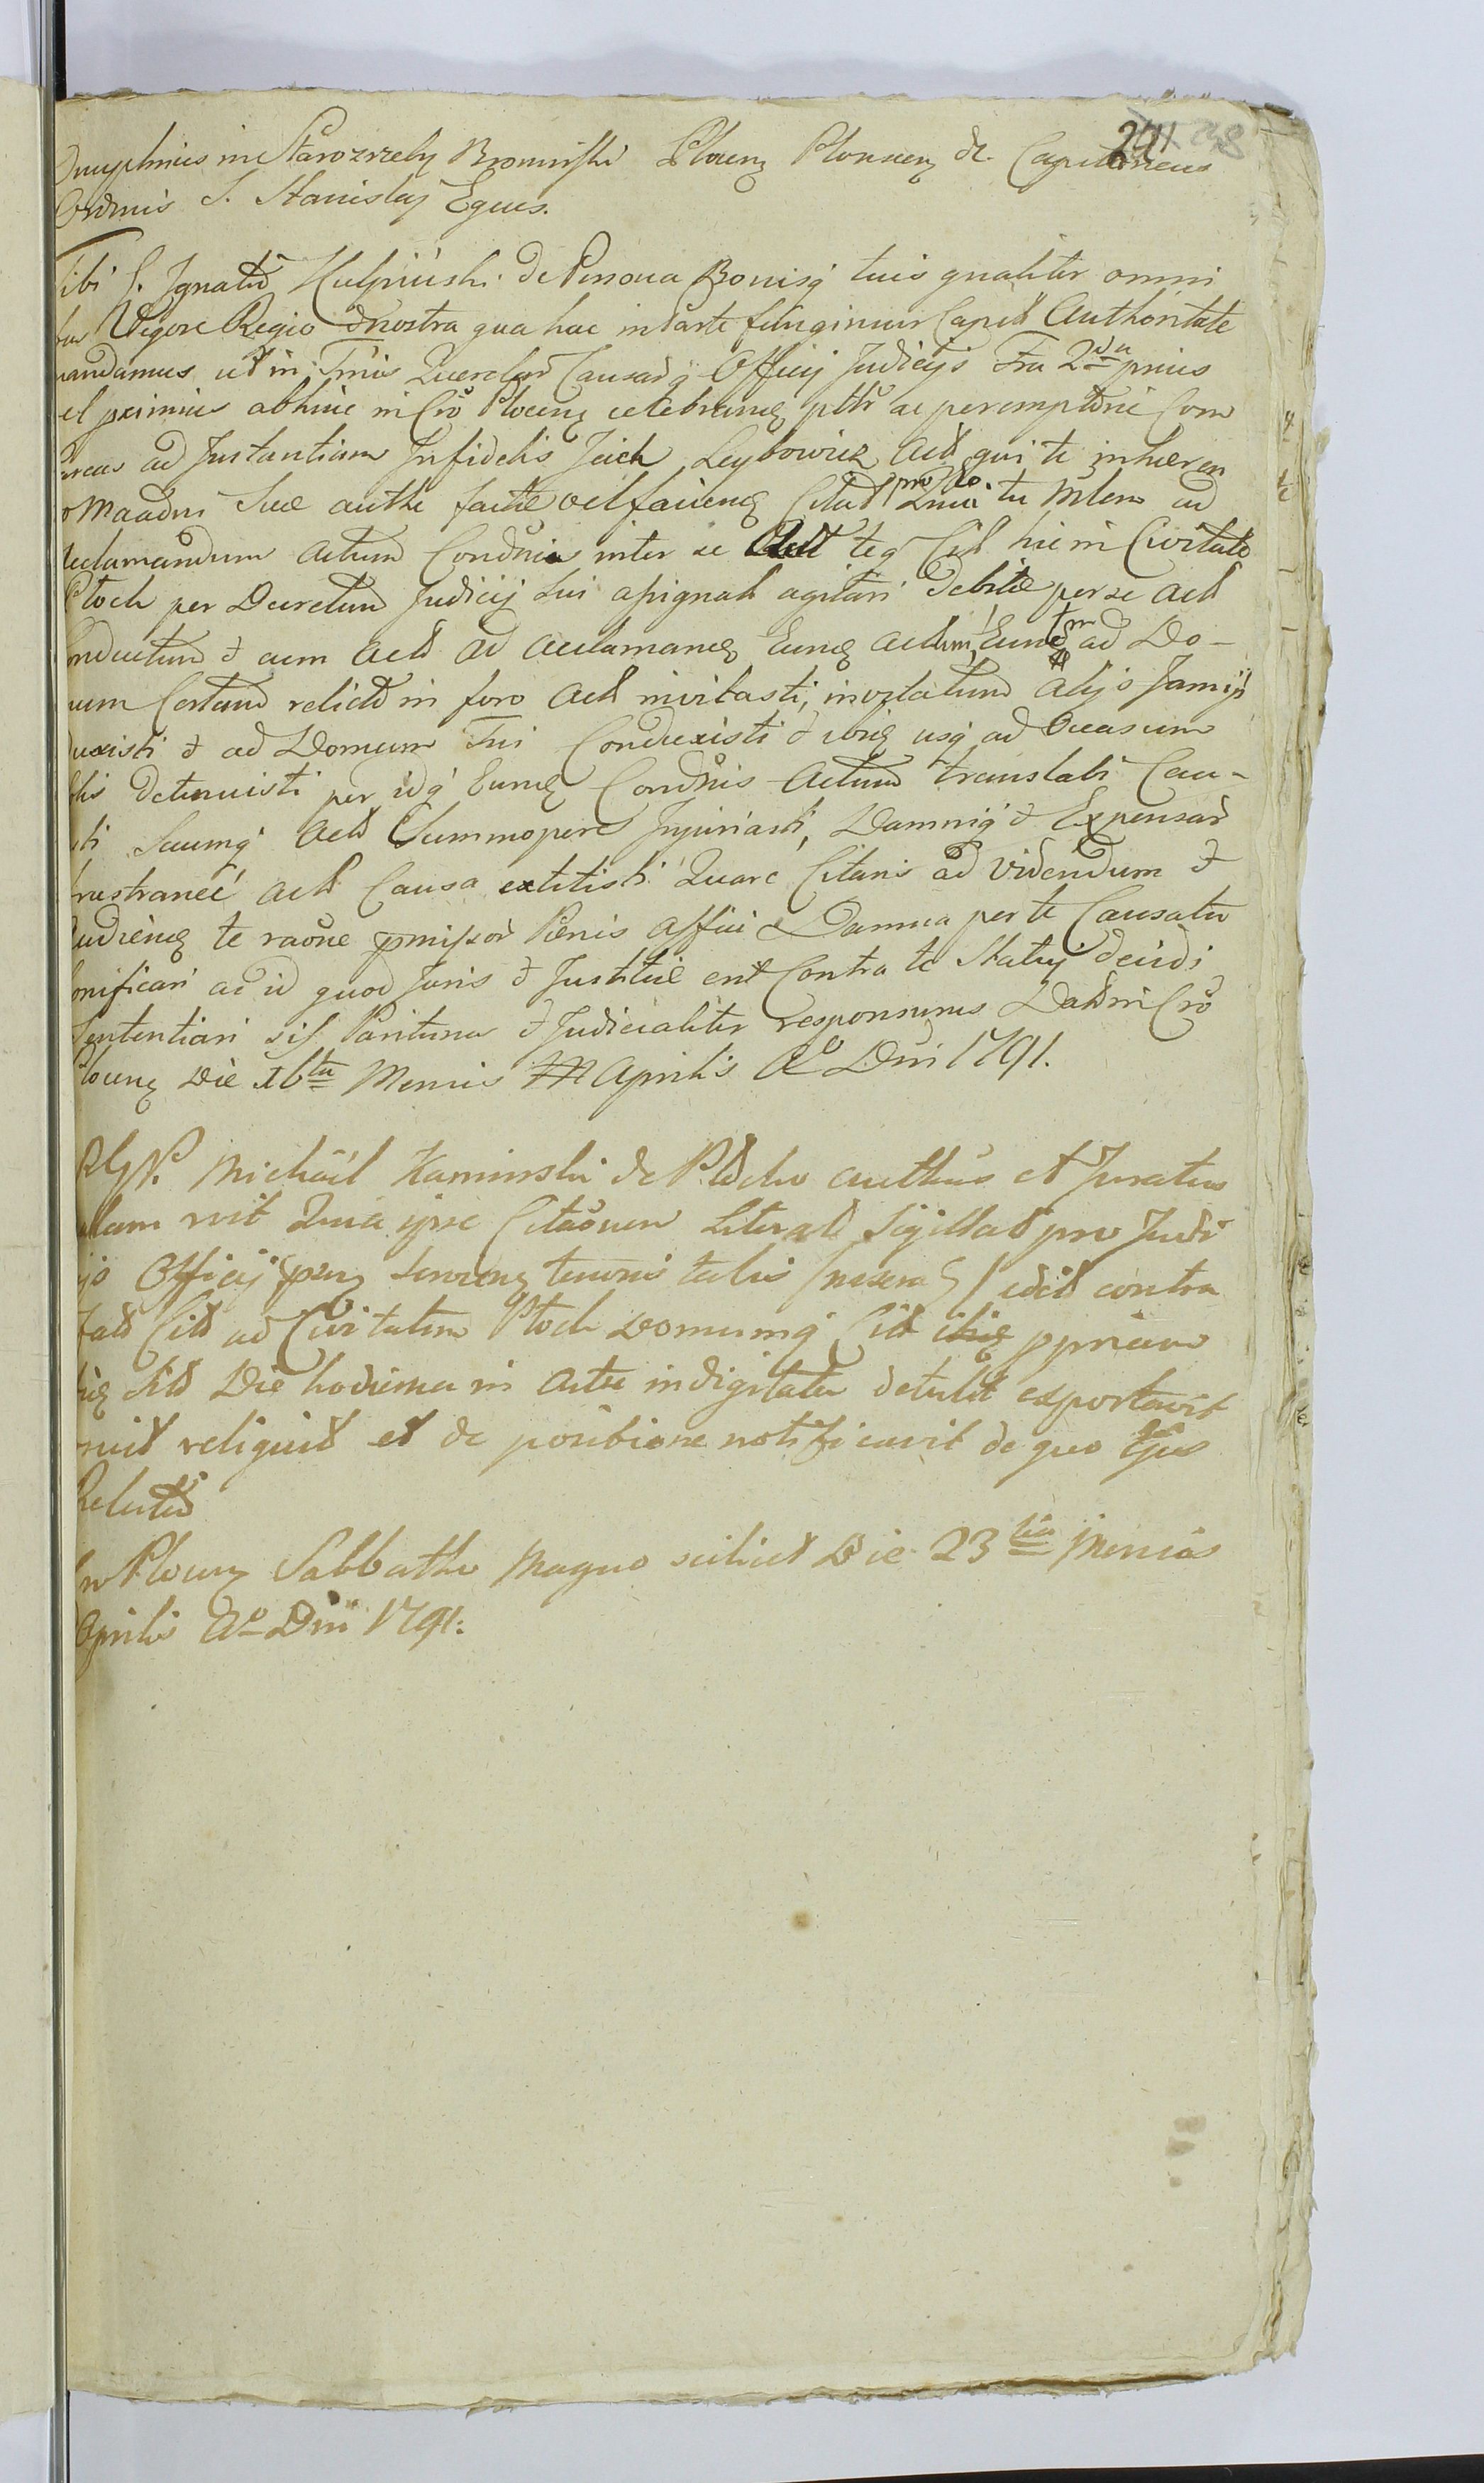 241 238
Onuphrius in Starozrzeby Bromirski Plocen Plonscen &c. Capitaneus
Ordinis S. Stanislaj Eques.
Tibi G. Ignatio de Bonisq tuis qualiter omni
bus Vigore Regio & nostra qua hac in Parte fungimur Capit Authoritate
mandamus ut in Trnis Querelar Causarq Officij Judicijs Fra 2da prius
vel pximius abhinc in Cro Plocen celebran pltr ac peremptorie Com
pareas ad Instantiam Infidelis Jcick Leybowicz Act qui te inhaeren
Sue authe facte vel facien Citat pro eo Quia tu Mlem ad
acclamandum Actum inter se Act teq Cit hic in Civitate
Ploch per Decretum Judicij Sui assignat agitari debite per se Act
Conductum & cum Act ad acclaman Eun Actum, Eun tm ad Do-
mum Certam relict in foro Act invitasti, invitatum alijs
duxisti & ad Domum Tui Conduxisti & ibiq usq ad Occasum
Solis detinuisti per idq Eun Condnis Actum translati Cau-
sti Seumq Act Summopere Injuriasti, Damniq & Expensar
frustranee Act Causa extitisti Quare Citaris ad videndum &
audien te raone pmissor Penis affici Damna per te Causata
bonificari ac id quod Juris & Justitie erit Contra te Statuj decidi
Sententiari sis Pariturus & Judicialiter responsurus Dat in Cro
Plocen Die 16ta Mensis Aprilis Ao Dni 1791.
Michael Kaminski de authus et Juratus
palam rcit Quia ipse Citaonem Literat Sigillat pro Judi
cijs Officij pn tenoris talis / edit contra
Cit ad Civitatem Ploch Domumq Cit ibiq ppriam
Die hodierna in Actu indigitata detulit exportavit
reliquit et de positione notificavit de quo Ejus
Relatio
In Plocen Sabbatho Magno scilict Die 23tia Mensis
Aprilis Ao Dni 1791.